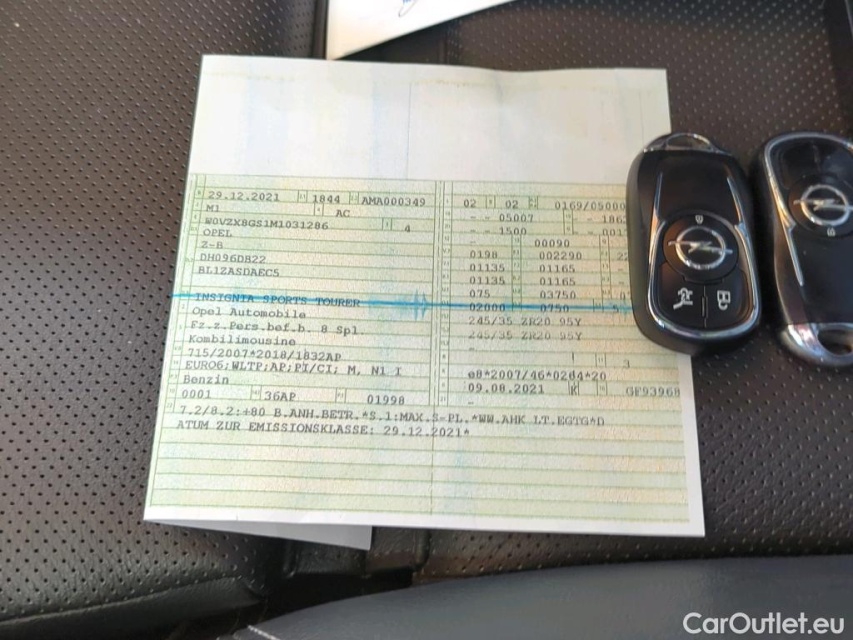 29.12.2021 1844 AMA000349
M1 AC
W0VZX8GS1M1031286 4
OPEL
Z-B
DH096DB22
BL1ZASDAEC5
INSIGNIA SPORTS TOURER
Opel Automobile
Fz.z.Pers.bef.b. 8 Spl.
Kombilimousine
715/2007*2018/1832AP
EURO6;WLTP;AP;PI/CI; M, N1 I
Benzin
0001 36AP 01998
02 02 0169/05000
- - 05007 - 186
- - 1500 - 001
- 00090
0198 002290 22
01135 01165
01135 01165
075 03750
02000 0750
245/35 ZR20 95Y
245/35 ZR20 95Y
-
- 3
e8*2007/46*0264*20
09.08.2021 K GF93968
-
7.2/8.2:+80 B.ANH.BETR.*S.1:MAX.S-PL.*WW.AHK LT.EGTG*D
ATUM ZUR EMISSIONSKLASSE: 29.12.2021*
CarOutlet.eu